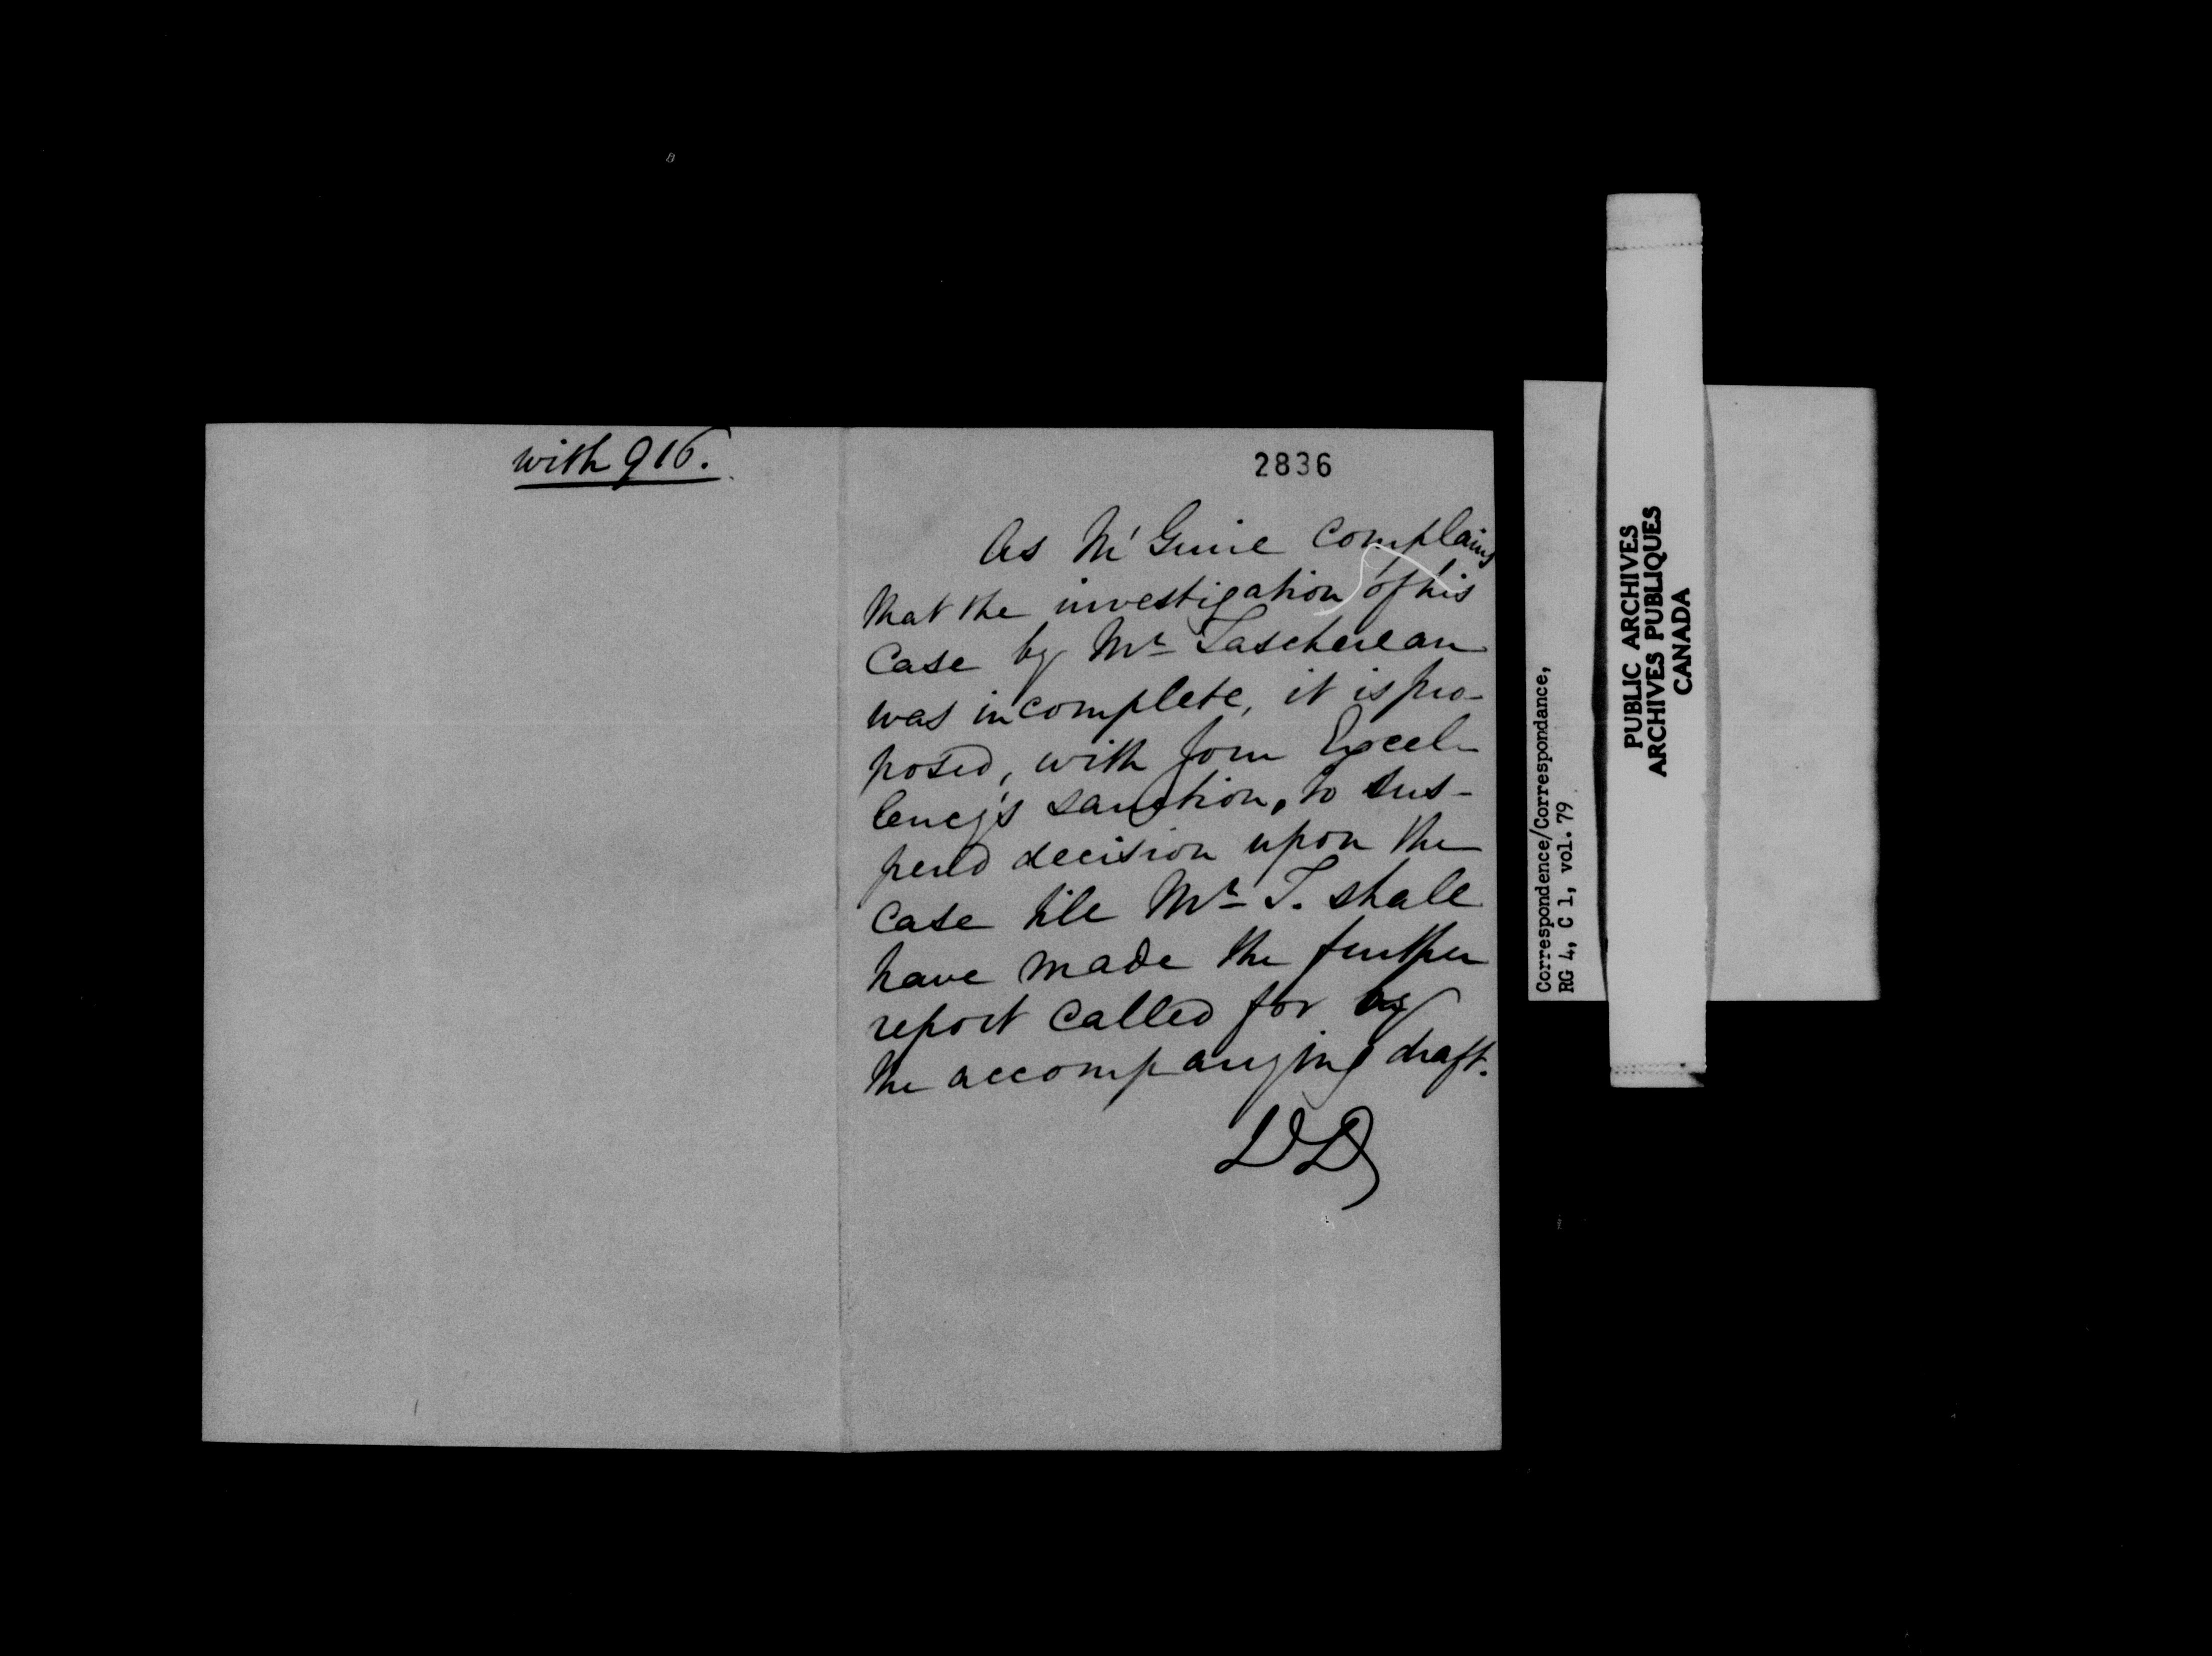 with 916.
2836
As McGuire complains
that the investigation of his
Case by Mr Taschereau
was incomplete, it is pro-
posed, with Your Excel-
lency's sanction, to sus-
pend decision upon the
case till Mr T. shall
have made the further
report called for by
the accompanying draft.
DD
Correspondence/Correspondance,
RG 4, C 1, vol. 79
PUBLIC ARCHIVES
ARCHIVES PUBLIQUES
CANADA